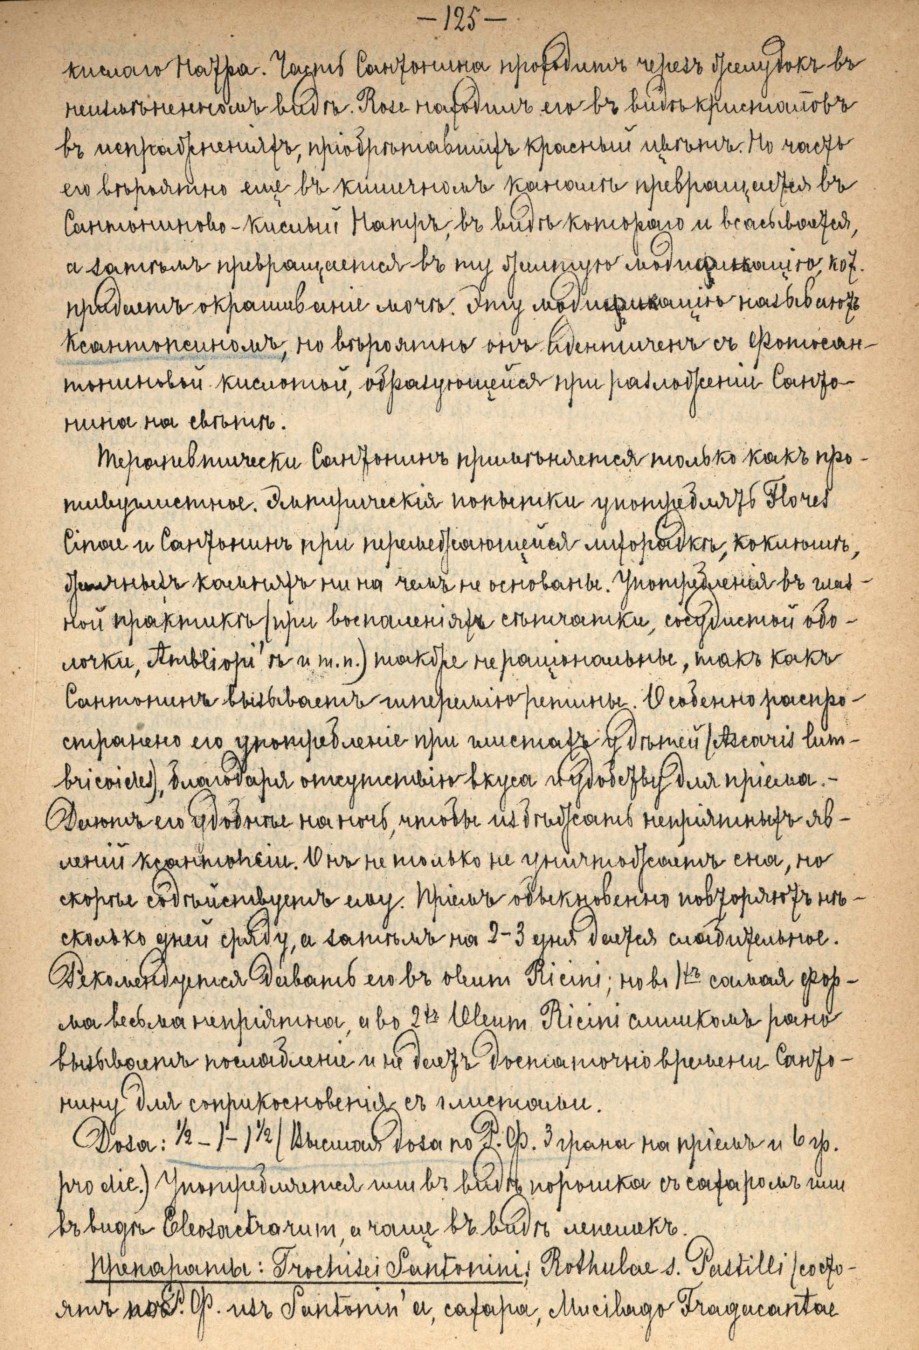 — 125 —
кислаго Натра. Часть Сантонина проходитъ черезъ желудокъ въ
неизмѣненномъ видѣ. Rose находилъ его въ видѣ кристалловъ
въ испражненіяхъ, пріобрѣтавшихъ красный цвѣтъ. Но часть
его вѣроятно еще въ кишечномъ каналѣ превращается въ
Сантониново-кислый Натръ, въ видѣ котораго и всасывается,
а затѣмъ превращается въ ту желтую модификацію, кот.
придаетъ окрашиваніе мочѣ. Эту модификацію называютъ
ксантопсиномъ, но вѣроятно онъ идентиченъ съ Фотосан-
тониновой кислотой, образующейся при разложеніи Санто-
нина на свѣтѣ.
Терапевтически Сантонинъ примѣняется только какъ про-
тивуглистное. Эмпирическія попытки употреблять Flores
Cinae и Сантонинъ при перемежающейся лихорадкѣ, коклюшѣ,
желчныхъ камняхъ ни на чемъ не основаны. Употребленія въ глаз-
ной практикѣ (при воспаленіяхъ сѣтчатки, сосудистой обо-
лочки, Ambliopi'ѣ и т.п.) также не раціональны, такъ какъ
Сантонинъ вызываетъ гиперемію ретины. Особенно распро-
странено его употребленіе при глистахъ у дѣтей (Ascaris lum-
bricoides), благодаря отсутствію вкуса и удобству для пріема.-
Даютъ его удобнѣе на ночь, чтобы избѣжать непріятныхъ яв-
леній ксантопсіи. Онъ не только не уничтожаетъ сна, но
скорѣе содѣйствуетъ ему. Пріемъ обыкновенно повторяютъ нѣ-
сколько дней сряду, а затѣмъ на 2-3 дня дается слабительное.
Рекомендуется давать его въ oleum Ricini; но во 1хъ самая фор-
ма весьма непріятна, а во 2хъ Oleum Ricini слишкомъ рано
вызываетъ послабленіе и не даетъ достаточно времени Санто-
нину для соприкосновенія съ глистами.
Доза: ½ – 1 – 1½ (Высшая доза по Р.Ф. 3 грана на пріемъ и 6 гр.
pro die.) Употребляется или въ видѣ порошка съ сахаромъ или
въ видѣ Eleosacharum, а чаще въ видѣ лепешекъ.
Препараты: Trochisci Santonini; Rothulae s. Pastilli (состо-
ятъ по Р.Ф. изъ Santonin'а, сахара, Mucilago Tragacantae